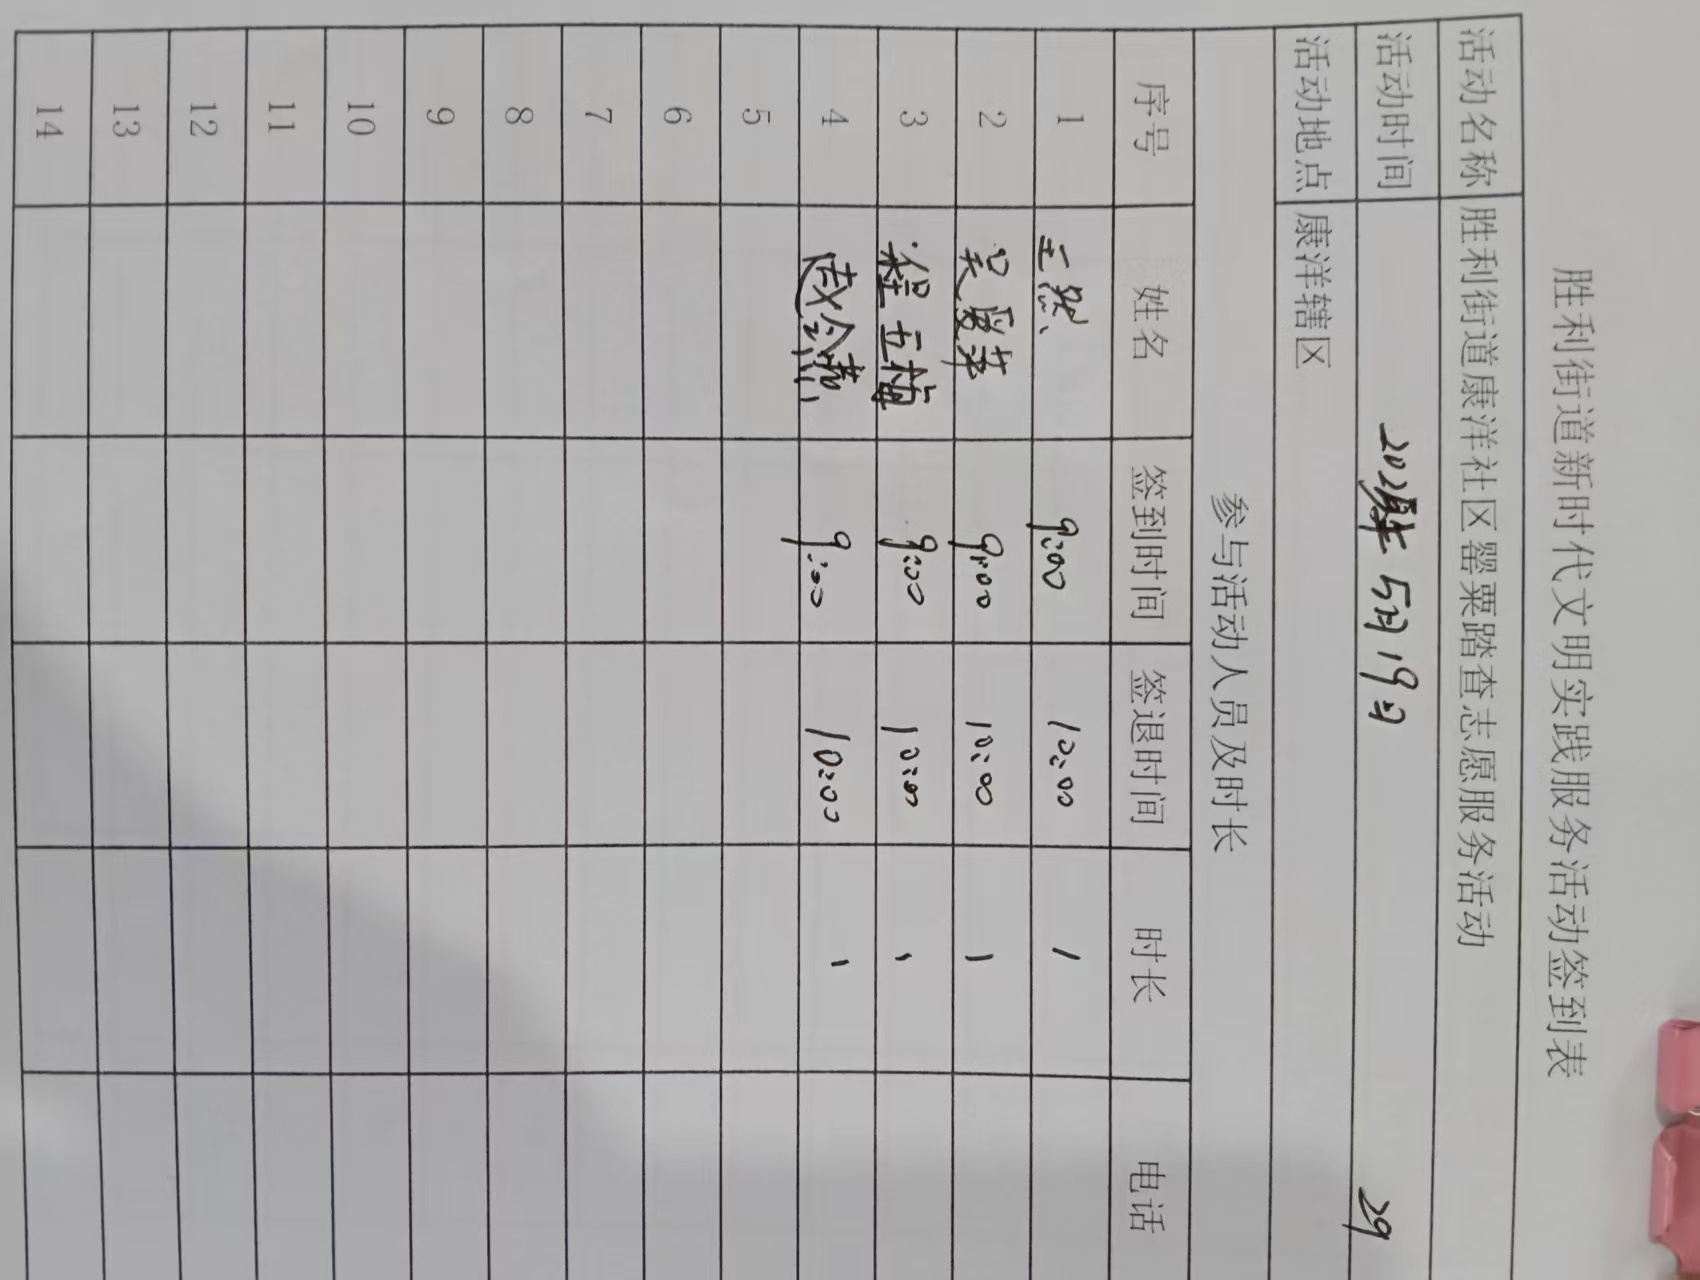 胜利街道新时代文明实践服务活动签到表
活动名称 胜利街道康洋社区罂粟踏查志愿服务活动
活动时间 5月19日 29
活动地点 康洋辖区
参与活动人员及时长
序号 姓名 签到时间 签退时间 时长 电话
1 王然 9:00 10:00 1
2 吴爱苹 9:00 10:00 1
3 程玉梅 9:00 10:00 1
4 赵金燕 9:00 10:00 1
5
6
7
8
9
10
11
12
13
14